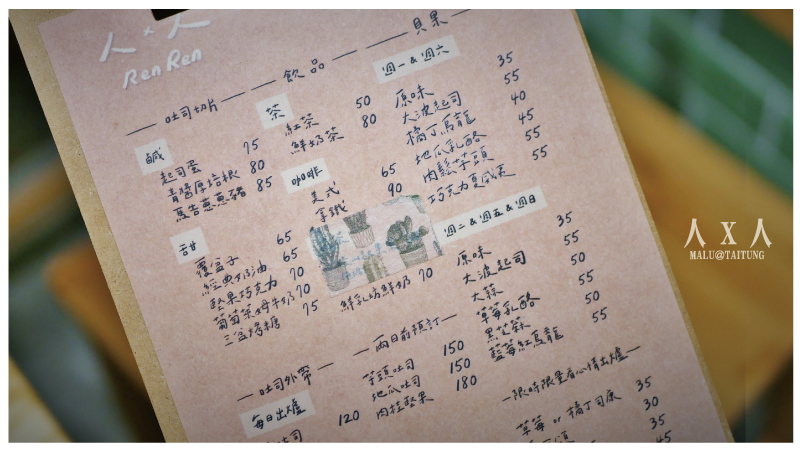 人 x 人
Ren Ren
吐司切片
鹹
起司蛋 75
青醬厚培根 80
馬告蔥蔥豬 85
甜
覆盆子 65
經典奶油 65
堅果巧克力 70
葡萄茶坶牛奶 70
三盆烤糖 75
飲品
茶
紅茶 50
鮮奶茶 80
咖啡
美式 65
拿鐵 90
鮮乳坊鮮奶 70
貝果
週一 & 週六
原味 35
大波起司 55
橘丁烏龍 40
地瓜乳酪 45
肉鬆芋頭 55
巧克力夏威夷 55
週二 & 週五 & 週日
原味 35
大波起司 55
大蒜 50
草莓乳酪 55
黑芝麻 50
藍莓紅烏龍 55
吐司外帶
每日出爐
吐司 120
兩日前預訂
芋頭吐司 150
地瓜吐司 150
肉桂堅果 180
限時限量看心情出爐
草莓 or 橘丁司康 35
30
45
人 X 人
MALU@TAITUNG